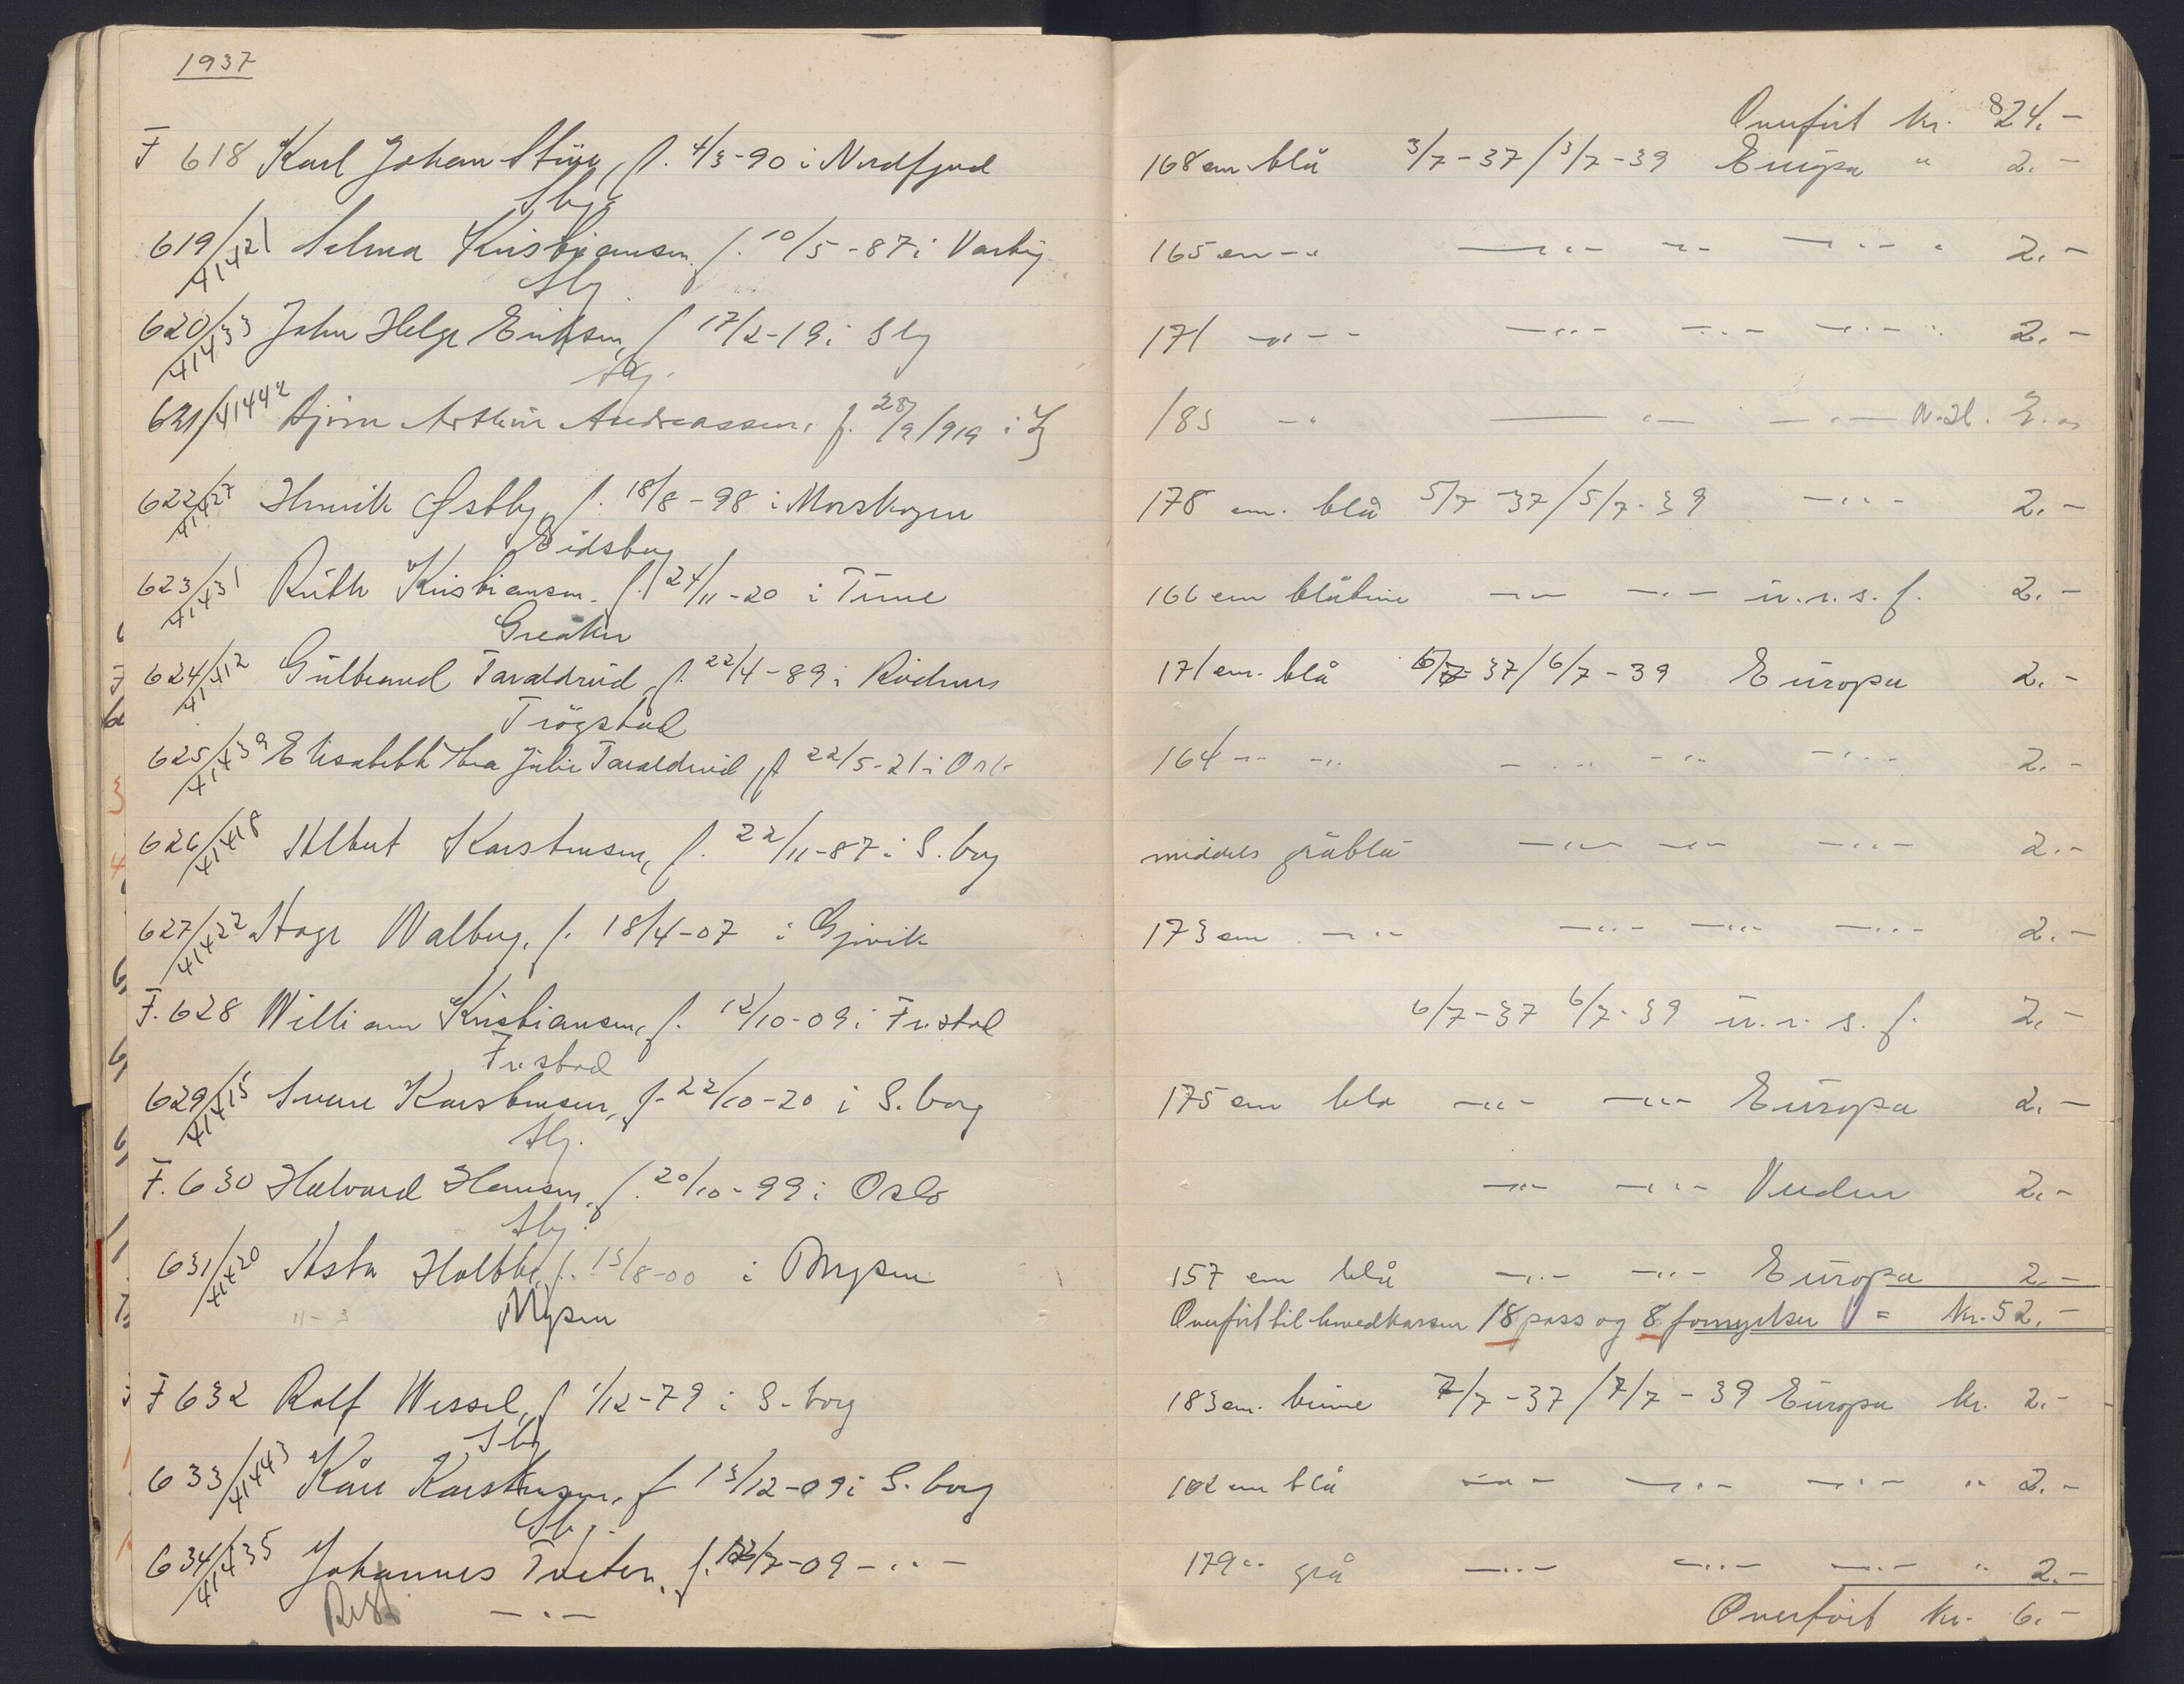 1937
F 618 Karl Johan Stüve, f. 4/3-90 i Nordfjord
Sbg.
619/41421 Selma Kristiansen f. 10/5-87 i Varteig
Sbg.
620/41433 John Helge Eriksen, f 17/2-19 i Sbg
Sbg.
621/41442 Bjørn Arthur Andreassen, f. 28/9 1919 i
622/41427 Henrik Østby, f. 18/8-98 i Morskogen
Eidsberg
623/41431 Ruth Kristiansen. f. 24/11-20 i Tune
Greåker
624/41412 Gulbrand Taraldrud, f. 22/4-89 i Rødenes
Trögstad
625/41439 Elisabeth Julie Taraldrud, f 22/5-21 i Oslo
626/41418 Albert Karstensen, f. 22/11-87 i S.borg
627/41422 Aage Walberg, f. 18/4-07 i Gjøvik
F. 628 William Kristiansen, f. 12/10-09 i Fr.stad
Fr.stad
629/41415 Sverre Karstensen, f. 22/10-20 i S.borg
Sbg.
F. 630 Halvard Hansen, f. 20/10-99 i Oslo
Sbg.
631/41420 Asta Holtbe, f. 15/8-00 i Mysen
Mysen
F 632 Rolf Wessel, f 1/12-79 i S.borg
Sbg
633/41443 Kåre Karstensen, f 13/12-09 i S.borg
Sbg.
634/41435 Johannes Tveten, f. /7-09 -"-
-"-
Overført kr. 824.-
168 cm blå 3/7-37/3/7-39 Europa " 2.-
165 cm -"- -"- -"- -"- " 2.-
171 -"- -"- -"- -"- " 2.-
183 -"- -"- -"-
178 cm. blå 5/7-37/5/7-39 -"- 2.-
166 cm blåbrune -"- -"- u.r.s.f. 2.-
171 cm. blå 6/7-37/6/7-39 Europa 2.-
164 -"- -"- -"- -"- -"- 2.-
middels gråblå -"- -"- -"- 2.-
173 cm -"- -"- -"- -"- 2.-
6/7-37 6/7-39 u.r.s.f. 2.-
175 cm blå -"- -"- Europa 2.-
-"- -"- Verden 2.-
157 cm blå -"- -"- Europa 2.-
Overført til hovedkassen 18 pass og 8 fornyelser = kr. 52.-
183 cm. brune 7/7-37/7/7-39 Europa kr. 2.-
182 cm blå -"- -"- -"- " 2.-
179 " grå -"- -"- -"- " 2.-
Overført kr. 6.-